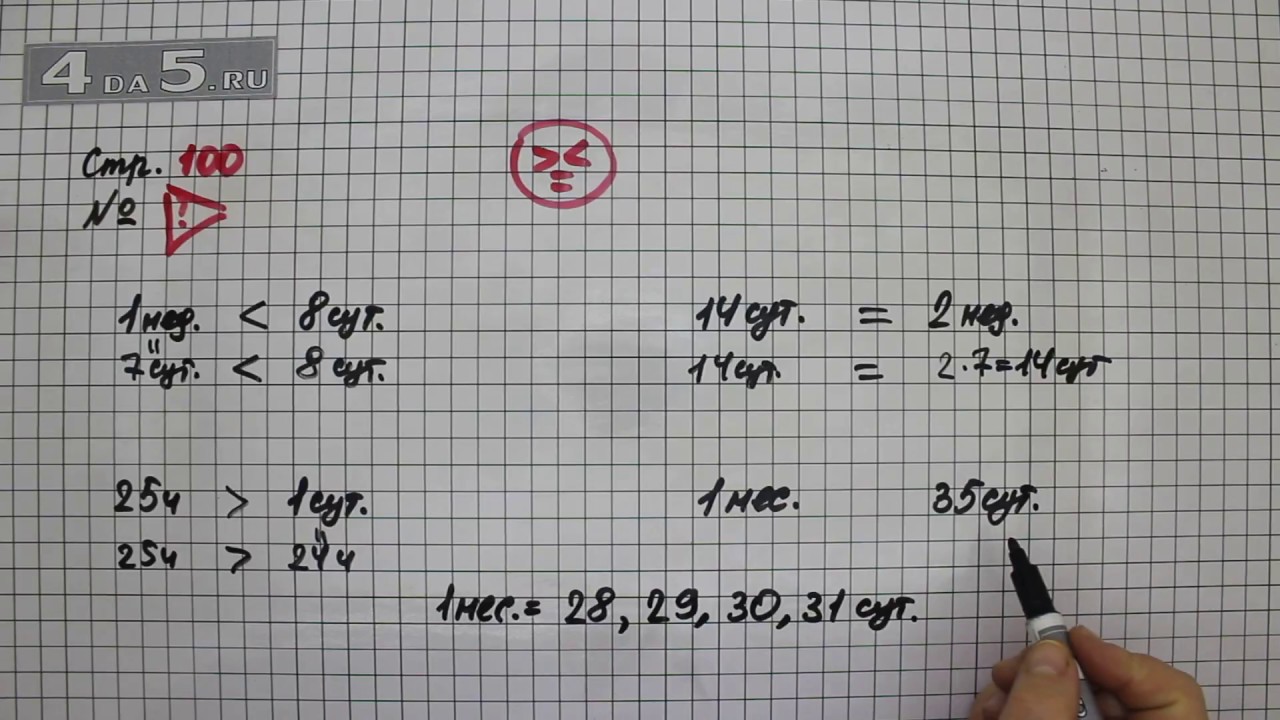 4 DA 5.RU
Стр. 100
№ !
> <
=
1 нед. < 8 сут.
7 сут. < 8 сут.
14 сут. = 2 нед.
14 сут. = 2·7=14 сут
25 ч > 1 сут.
25 ч > 24 ч
1 мес. 35 сут.
1 мес. = 28, 29, 30, 31 сут.